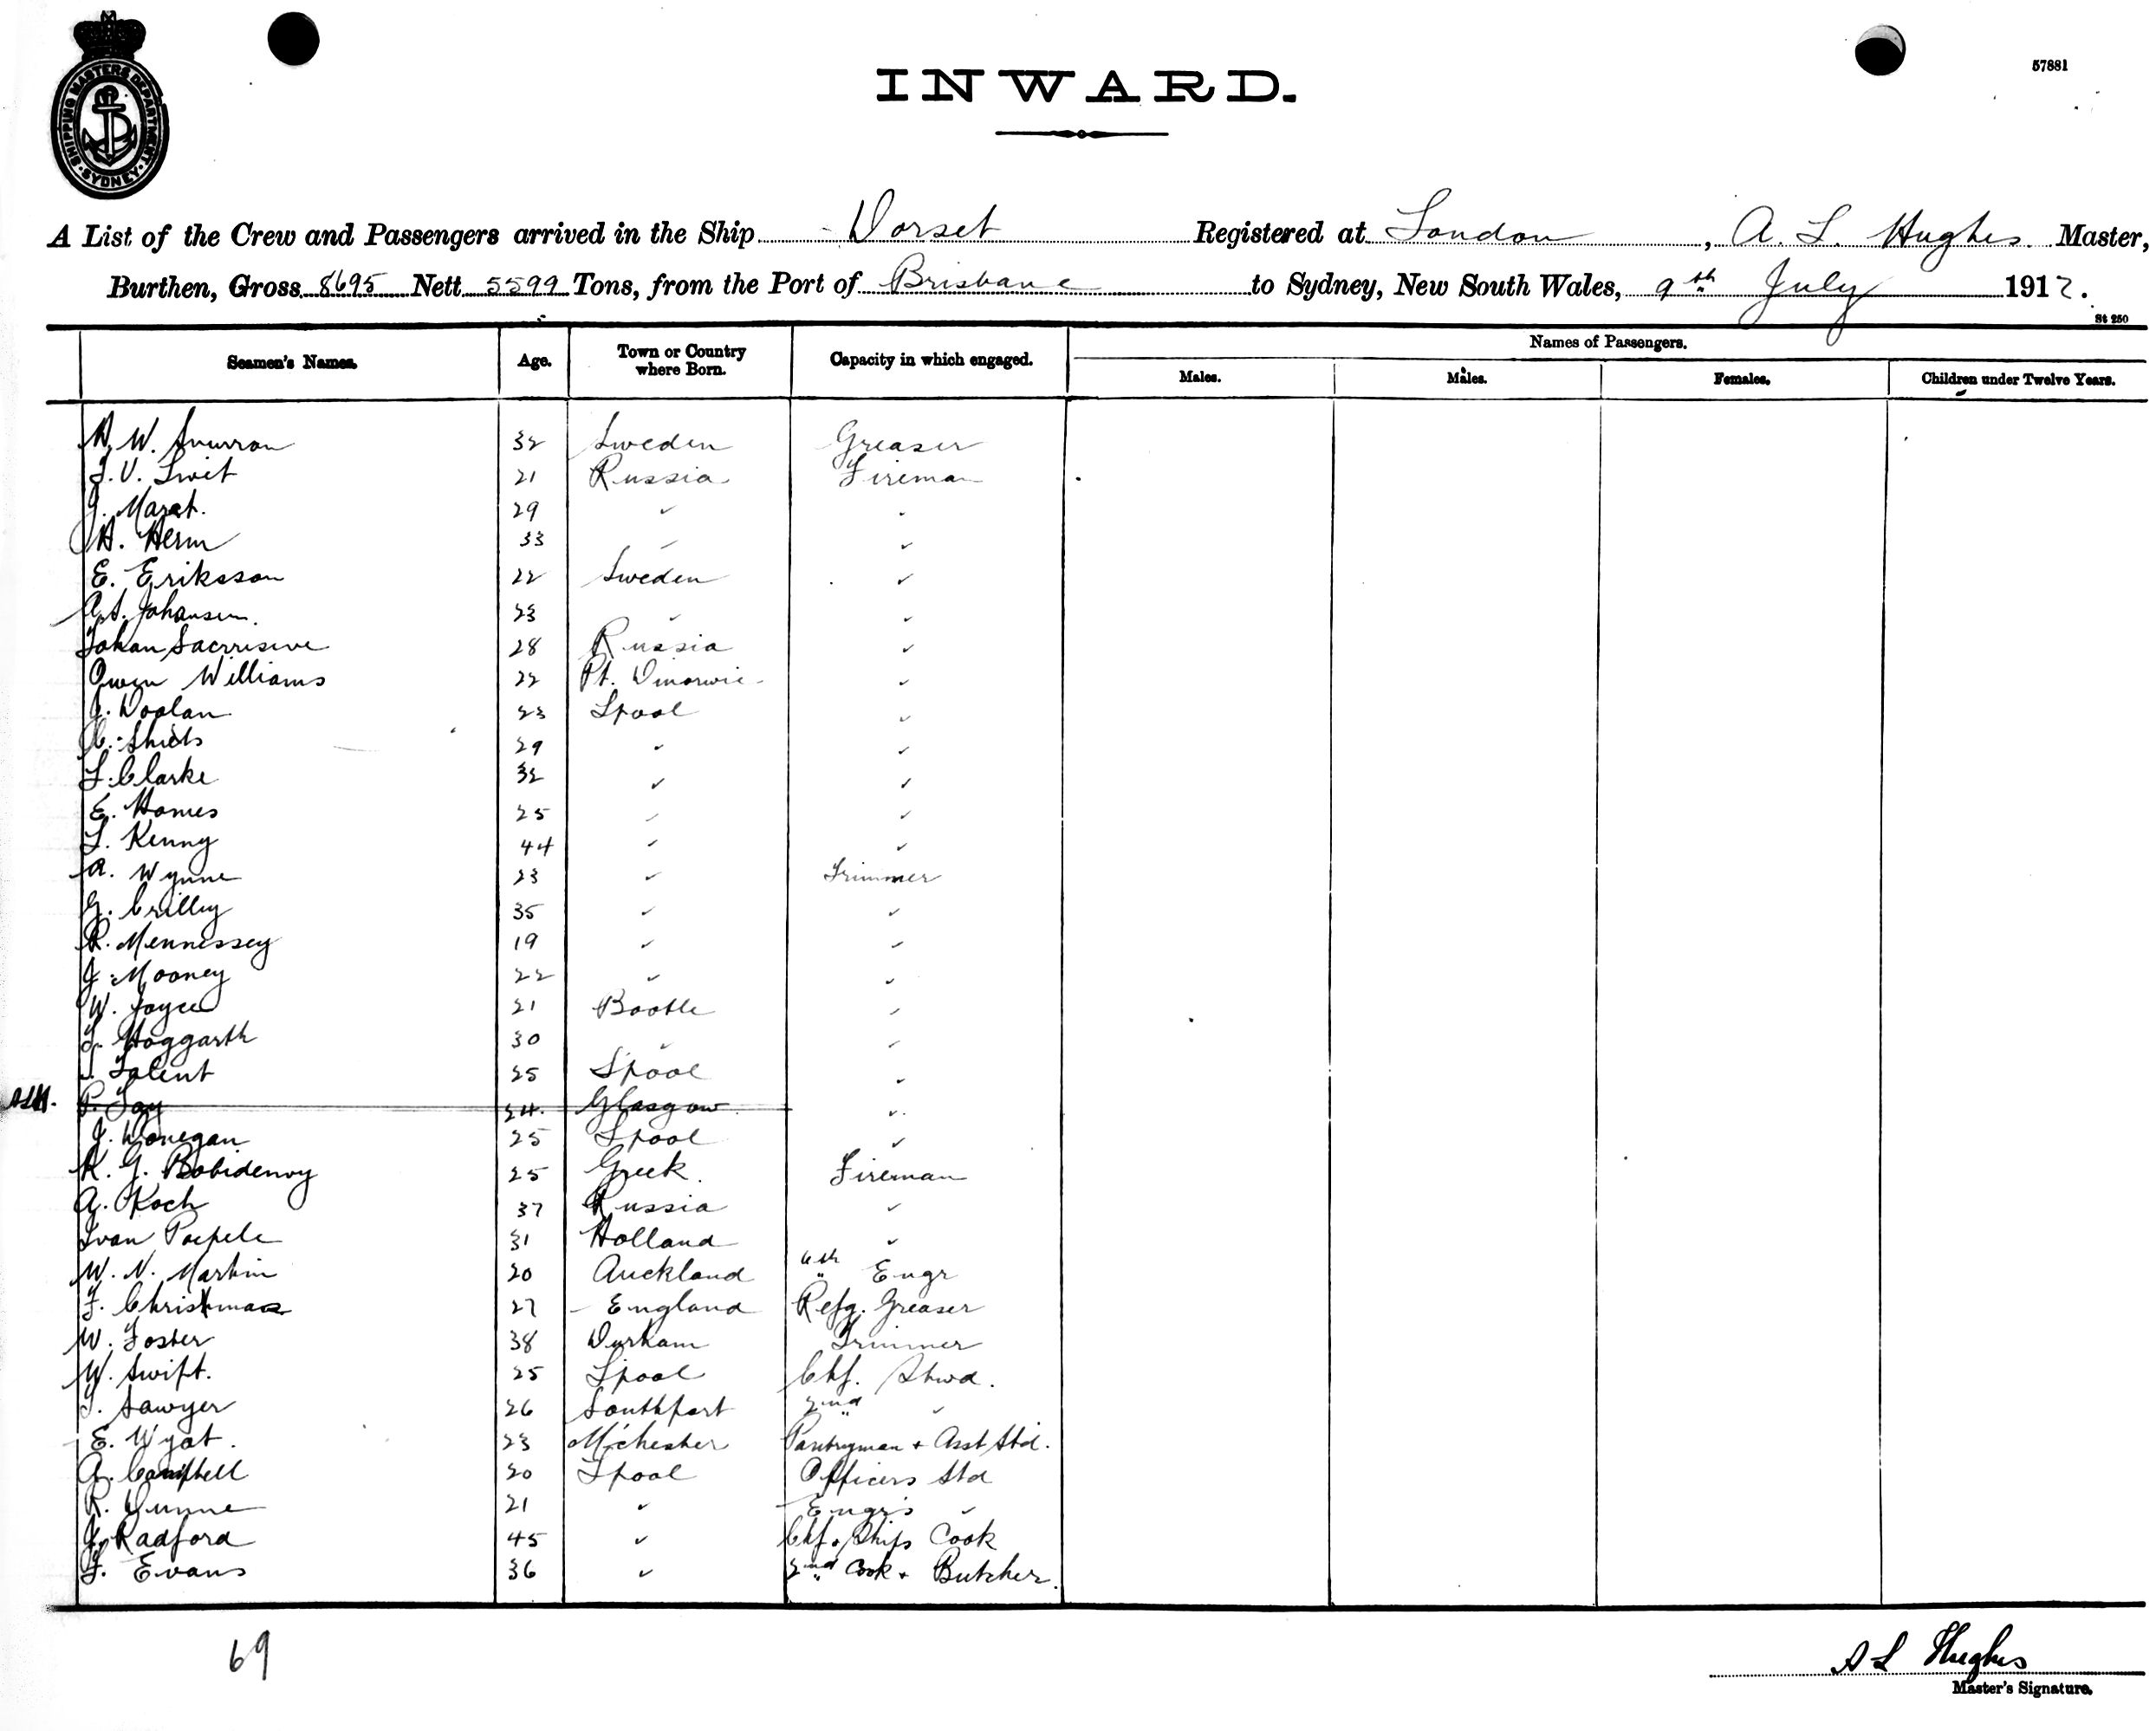 SHIPPING MASTERS DEPARTMENT · SYDNEY ·
57881
INWARD.
A List of the Crew and Passengers arrived in the Ship Dorset Registered at London, A. L. Hughes Master,
Burthen, Gross 8695 Nett 5599 Tons, from the Port of Brisbane to Sydney, New South Wales, 9th July 1912.
St 250
Seamen's Names. Age. Town or Country where Born. Capacity in which engaged. Names of Passengers.
Males. Males. Females. Children under Twelve Years.
W. 32 Sweden Greaser
V. 21 Russia Fireman
29 " "
Herm 33 " "
E. Eriksson 22 Sweden "
Johansen. 23 " "
Johan 28 Russia "
Owen Williams 22 Pt. Dinorwic "
J. Doolan 23 Lpool "
29 " "
Clarke 32 " "
E. 25 " "
Kenny 44 " "
A. Wynne 23 " Trimmer
G. Crilly 35 " "
R. Mennessey 19 " "
J. Mooney 22 " "
W. Joyce 21 Bootle "
Hoggarth 30 " "
Talent 25 Lpool "
ALH. P. 24. Glasgow "
J. Donegan 25 Lpool "
K. G. 25 Greek Fireman
A. Koch 37 Russia "
Ivan 31 Holland "
W. N. Martin 20 Auckland 6th Engr
F. Christmas 27 England Refg. Greaser
W. Foster 38 Durham Trimmer
W. Swift. 25 Lpool Chf. Stwd.
Sawyer 26 Southport 2nd "
E. Wyat. 23 M'chester Pantryman + Asst Std.
A. Campbell 20 Lpool Officers Std
R. Dunne 21 " Engrs "
J. Radford 45 " Chf. Ships Cook
F. Evans 36 " 2nd Cook + Butcher.
69
A L Hughes
Master's Signature.